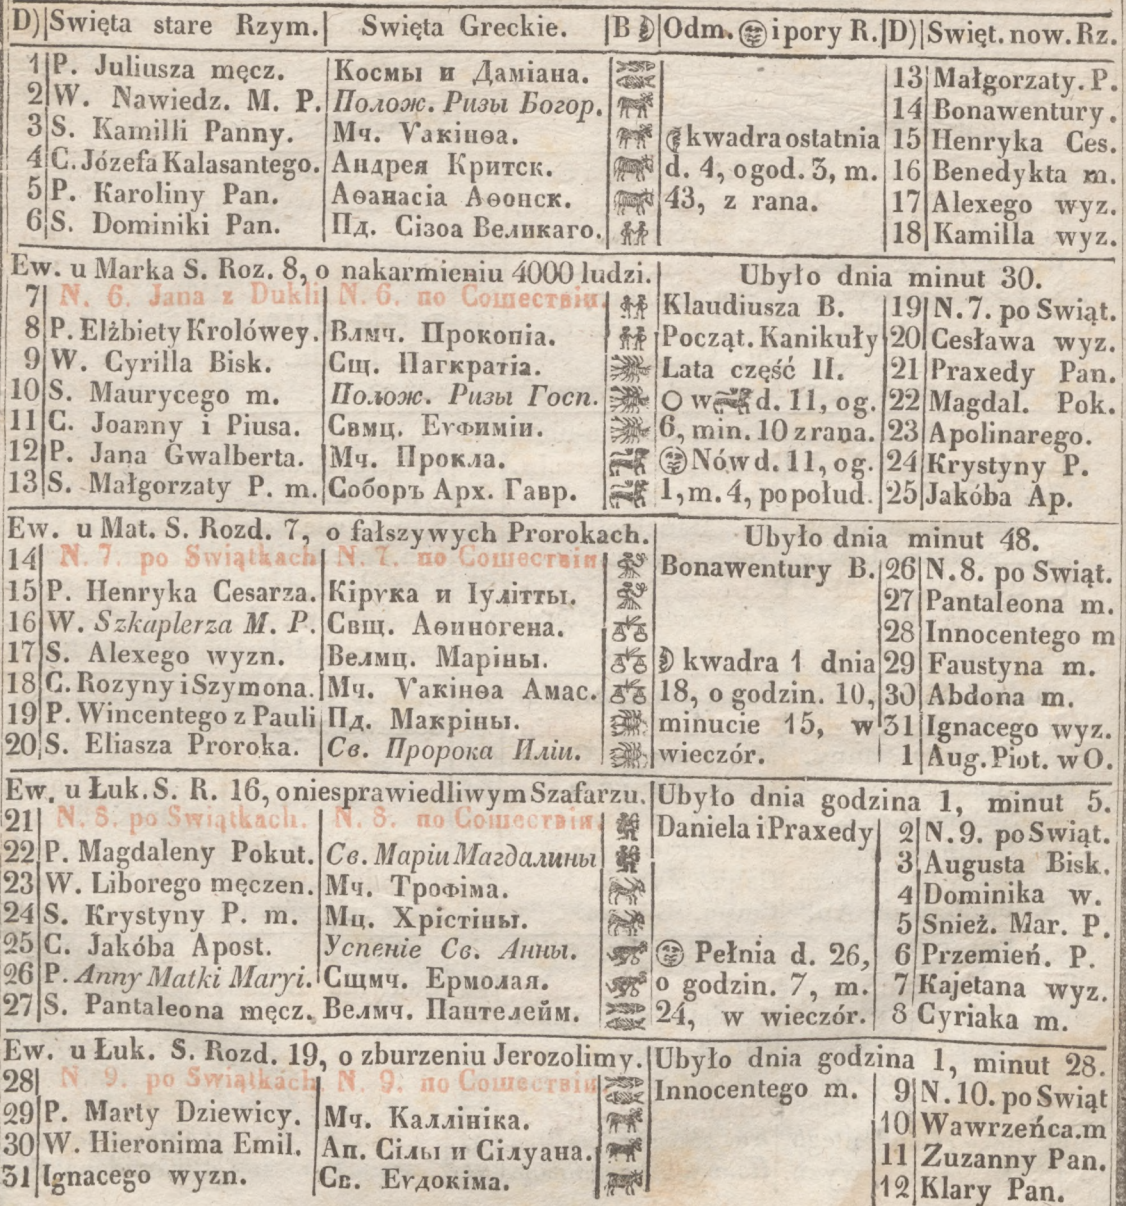 D) Swięta stare Rzym. Swięta Greckie. B ☽ Odm. i pory R. D) Swięt. now. Rz.
1 P. Juliusza męcz. Космы и Даміана. 13 Małgorzaty. P.
2 W. Nawiedz. M. P. Полож. Ризы Богор. 14 Bonawentury.
3 S. Kamilli Panny. Мч. Ѵакінѳа. kwadra ostatnia 15 Henryka Ces.
4 C. Józefa Kalasantego. Андрея Критск. d. 4, o god. 3, m. 16 Benedykta m.
5 P. Karoliny Pan. Аѳанасіа Аѳонск. 43, z rana. 17 Alexego wyz.
6 S. Dominiki Pan. Пд. Сізоа Великаго. 18 Kamilla wyz.
Ew. u Marka S. Roz. 8, o nakarmieniu 4000 ludzi. Ubyło dnia minut 30.
7 N. 6. Jana z Dukli N. 6. по Сошествіи. Klaudiusza B. 19 N. 7. po Swiąt.
8 P. Elżbiety Krolówey. Влмч. Прокопіа. Począt. Kanikuły 20 Cesława wyz.
9 W. Cyrilla Bisk. Сщ. Пагкратіа. Lata część II. 21 Praxedy Pan.
10 S. Maurycego m. Полож. Ризы Госп. w d. 11, og. 22 Magdal. Pok.
11 C. Joanny i Piusa. Свмц. Еѵфиміи. 6, min. 10 z rana. 23 Apolinarego.
12 P. Jana Gwalberta. Мч. Прокла. Nów d. 11, og. 24 Krystyny P.
13 S. Małgorzaty P. m. Соборъ Арх. Гавр. 1, m. 4, po połud. 25 Jakóba Ap.
Ew. u Mat. S. Rozd. 7, o fałszywych Prorokach. Ubyło dnia minut 48.
14 N. 7. po Swiątkach N. 7. по Сошествіи Bonawentury B. 26 N. 8. po Swiąt.
15 P. Henryka Cesarza. Кірѵка и Іулітты. 27 Pantaleona m.
16 W. Szkaplerza M. P. Свщ. Аѳиногена. 28 Innocentego m
17 S. Alexego wyzn. Велмц. Маріны. ☽ kwadra 1 dnia 29 Faustyna m.
18 C. Rozyny i Szymona. Мч. Ѵакінѳа Амас. 18, o godzin. 10, 30 Abdona m.
19 P. Wincentego z Pauli Пд. Макріны. minucie 15, w 31 Ignacego wyz.
20 S. Eliasza Proroka. Св. Пророка Иліи. wieczór. 1 Aug. Piot. w O.
Ew. u Łuk. S. R. 16, o niesprawiedliwym Szafarzu. Ubyło dnia godzina 1, minut 5.
21 N. 8. po Swiątkach. N. 8. по Сошествіи. Daniela i Praxedy 2 N. 9. po Swiąt.
22 P. Magdaleny Pokut. Св. Маріи Магдалины 3 Augusta Bisk.
23 W. Liborego męczen. Мч. Трофіма. 4 Dominika w.
24 S. Krystyny P. m. Мц. Хрістіны. 5 Snież. Mar. P.
25 C. Jakóba Apost. Успеніе Св. Анны. Pełnia d. 26, 6 Przemień. P.
26 P. Anny Matki Maryi. Сщмч. Ермолая. o godzin. 7, m. 7 Kajetana wyz.
27 S. Pantaleona męcz. Велмч. Пантелейм. 24, w wieczór. 8 Cyriaka m.
Ew. u Łuk. S. Rozd. 19, o zburzeniu Jerozolimy. Ubyło dnia godzina 1, minut 28.
28 N. 9. po Swiątkách N. 9. по Сошествіи Innocentego m. 9 N. 10. po Swiąt
29 P. Marty Dziewicy. Мч. Каллініка. 10 Wawrzeńca.m
30 W. Hieronima Emil. Ап. Сілы и Сілуана. 11 Zuzanny Pan.
31 Ignacego wyzn. Св. Еѵдокіма. 12 Klary Pan.